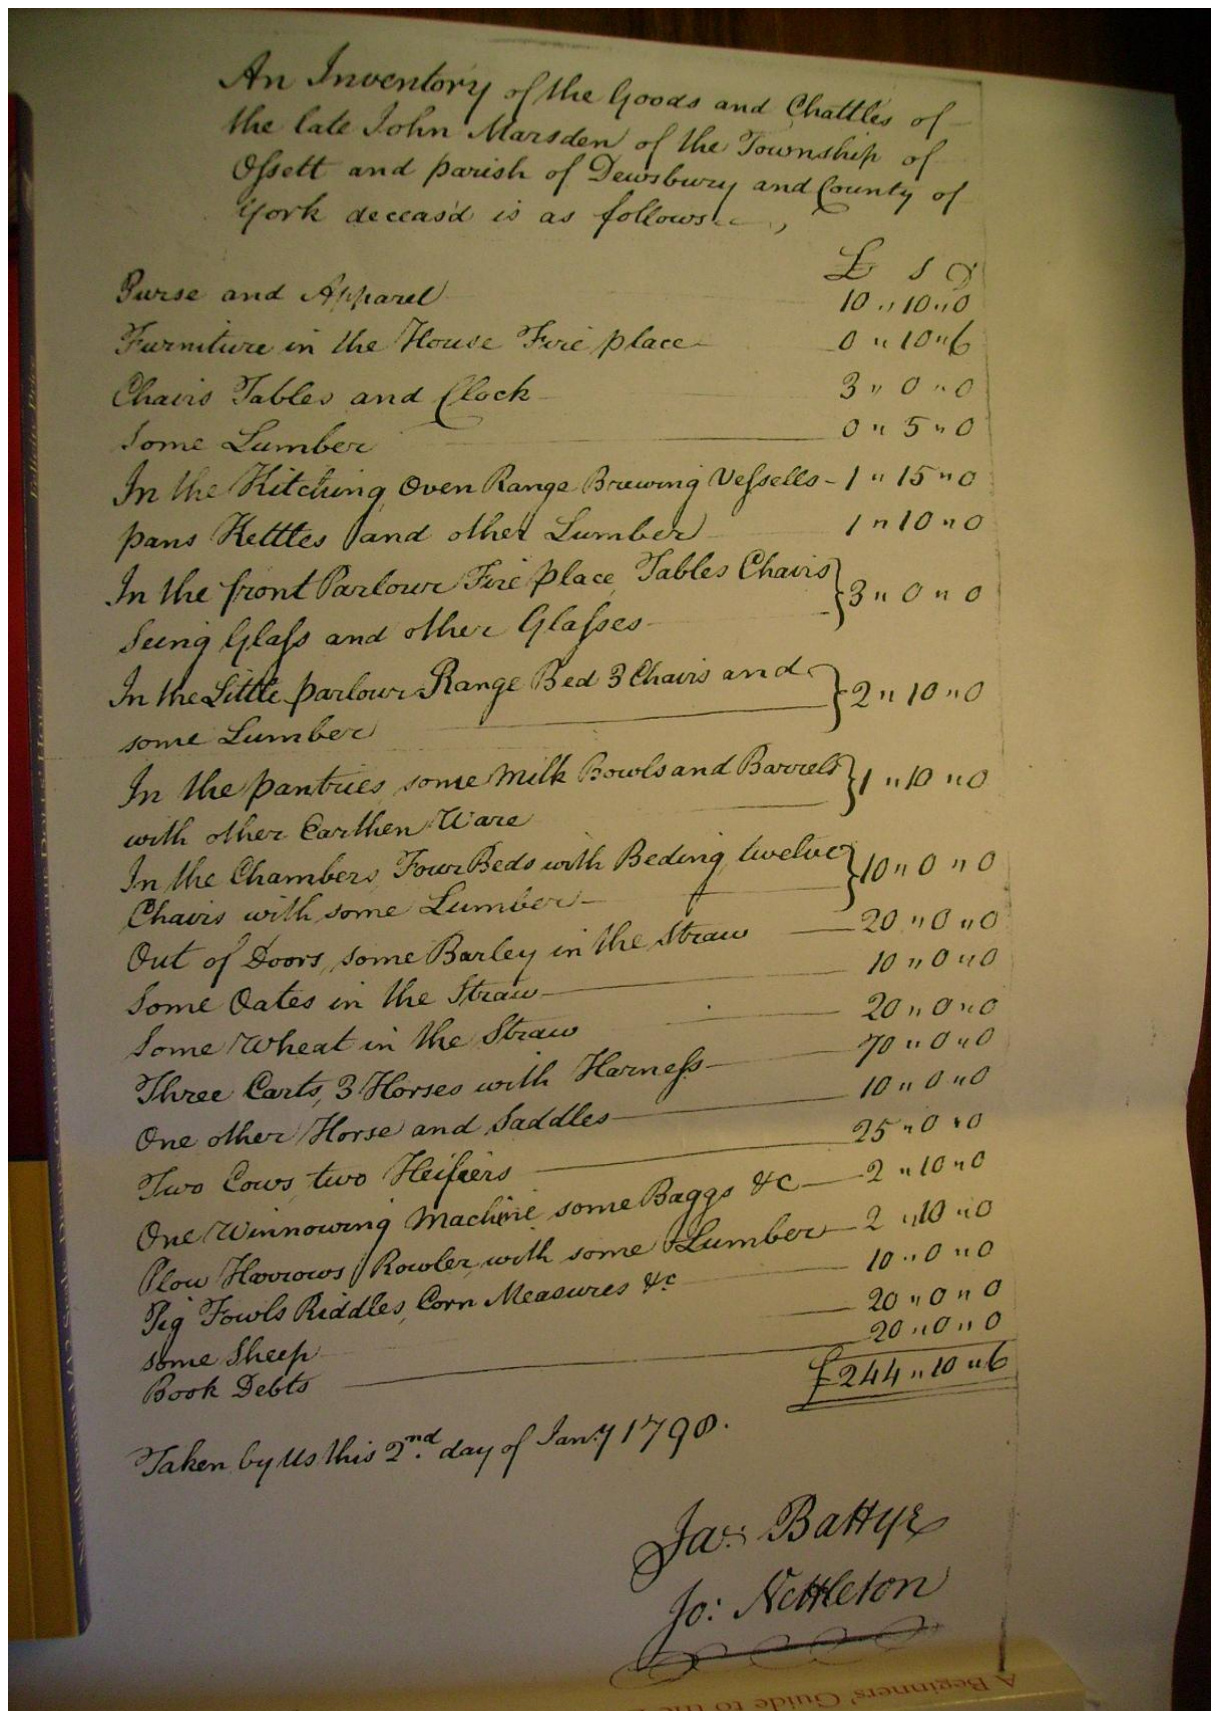 An Inventory of the Goods and Chattles of
the late John Marsden of the Township of
Ossett and parish of Dewsbury and County of
York deceas'd is as follows
£ s d
Purse and Apparel 10 " 10 " 0
Furniture in the House Fire place 0 " 10 " 6
Chairs Tables and Clock 3 " 0 " 0
Some Lumber 0 " 5 " 0
In the Kitching Oven Range Brewing Vessells - 1 " 15 " 0
pans Kettles and other Lumber 1 " 10 " 0
In the front Parlour Fire place, Tables Chairs } 3 " 0 " 0
Seeing Glass and other Glasses
In the Little parlour Range Bed 3 Chairs and } 2 " 10 " 0
some Lumber
In the pantries some Milk Bowls and Barrels } 1 " 10 " 0
with other Earthen Ware
In the Chambers Four Beds with Beding, twelve } 10 " 0 " 0
Chairs with some Lumber
Out of Doors, some Barley in the Straw 20 " 0 " 0
Some Oates in the Straw 10 " 0 " 0
Some Wheat in the Straw 20 " 0 " 0
Three Carts, 3 Horses with Harness 70 " 0 " 0
One other Horse and Saddles 10 " 0 " 0
Two Cows, two Heifiers 25 " 0 " 0
One Winnowing Machine some Baggs &c 2 " 10 " 0
Plow Harrows Rowler, with some Lumber 2 " 10 " 0
Pig Fowls Riddles, Corn Measures &c 10 " 0 " 0
some Sheep 20 " 0 " 0
Book Debts 20 " 0 " 0
£244 " 10 " 6
Taken by Us this 2nd day of Jany 1798.
Jas: Battye
Jo: Nettleton
A Beginners' Guide to the